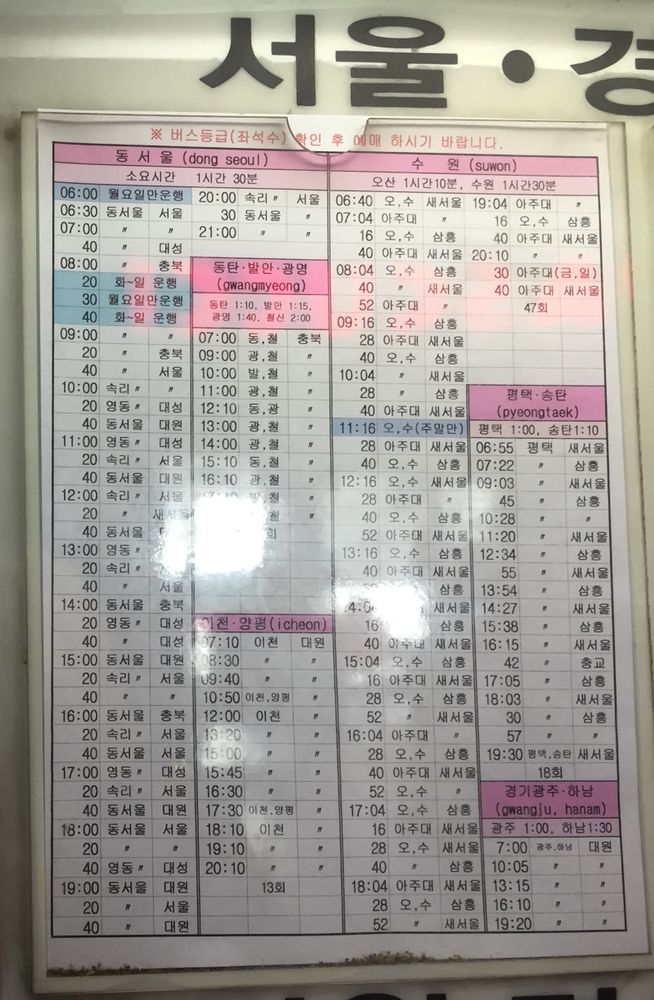 서울 •
※ 버스등급(좌석수) 확인 후 예매 하시기 바랍니다.
동 서 울 (dong seoul)
소요시간 1시간 30분
06:00 월요일만운행
06:30 동서울 서울
07:00 〃 〃
40 〃 대성
08:00 〃 충북
20 화~일 운행
30 월요일만운행
40 화~일 운행
09:00 〃 〃
20 〃 충북
40 〃 서울
10:00 속리〃 〃
20 영동〃 대성
40 동서울 대원
11:00 영동〃 대성
20 속리〃 서울
40 동서울 대원
12:00 속리〃 서울
20 〃 새서울
40 동서울
13:00 영동〃
20 속리〃
40 〃 서울
14:00 동서울 충북
20 영동〃 대성
40 〃 대성
15:00 동서울 대원
20 속리〃 서울
40 〃 〃
16:00 동서울 충북
20 속리〃 서울
40 동서울 서울
17:00 영동〃 대성
20 속리〃 서울
40 동서울 대원
18:00 동서울 서울
20 〃 〃
40 영동〃 대성
19:00 동서울 대원
20 〃 서울
40 〃 대원
20:00 속리〃 서울
30 동서울 〃
21:00 〃 〃
동탄·발안·광명
(gwangmyeong)
동탄 1:10, 발안 1:15,
광명 1:40, 철산 2:00
07:00 동,철 충북
09:00 광,철 〃
10:00 발,철 〃
11:00 광,철 〃
12:10 동,광 〃
13:00 광,철 〃
14:00 광,철 〃
15:10 동,철 〃
16:10 광,철 〃
발,철 〃
철 〃
회
이천·양평(icheon)
07:10 이천 대원
08:30 〃 〃
09:40 〃 〃
10:50 이천,양평 〃
12:00 이천 〃
13:20 〃 〃
15:00 〃 〃
15:45 〃 〃
16:30 〃 〃
17:30 이천,양평 〃
18:10 이천 〃
19:10 〃 〃
20:10 〃 〃
13회
수 원 (suwon)
오산 1시간10분, 수원 1시간30분
06:40 오,수 새서울
07:04 아주대 〃
16 오,수 삼흥
40 아주대 새서울
08:04 오,수 삼흥
40 〃 새서울
52 아주대 〃
09:16 오,수 삼흥
28 아주대 새서울
40 오,수 삼흥
10:04 〃 새서울
28 〃 삼흥
40 아주대 새서울
11:16 오,수(주말만)
28 아주대 새서울
40 오,수 삼흥
12:16 오,수 새서울
28 아주대 〃
40 오,수 삼흥
52 아주대 새서울
13:16 오,수 삼흥
40 아주대 새서울
삼흥
새서울
16 삼흥
40 아주대 새서울
15:04 오,수 삼흥
16 아주대 새서울
28 오,수 삼흥
52 〃 새서울
16:04 아주대 〃
28 오,수 삼흥
40 아주대 새서울
52 오,수 〃
17:04 오,수 삼흥
16 아주대 새서울
28 오,수 새서울
40 〃 삼흥
18:04 아주대 새서울
28 오,수 삼흥
52 〃 새서울
19:04 아주대 〃
16 오,수 삼흥
40 아주대 새서울
20:10 〃 〃
30 아주대(금,일)
40 아주대 새서울
47회
평택·송탄
(pyeongtaek)
평택 1:00, 송탄1:10
06:55 평택 새서울
07:22 〃 삼흥
09:03 〃 새서울
45 〃 삼흥
10:28 〃 〃
11:20 〃 새서울
12:34 〃 삼흥
55 〃 새서울
13:54 〃 삼흥
14:27 〃 새서울
15:38 〃 삼흥
16:15 〃 새서울
42 〃 충교
17:05 〃 삼흥
18:03 〃 새서울
30 〃 삼흥
57 〃 〃
19:30 평택,송탄 새서울
18회
경기광주·하남
(gwangju, hanam)
광주 1:00, 하남1:30
7:00 광주,하남 대원
10:05 〃 〃
13:15 〃 〃
16:10 〃 〃
19:20 〃 〃